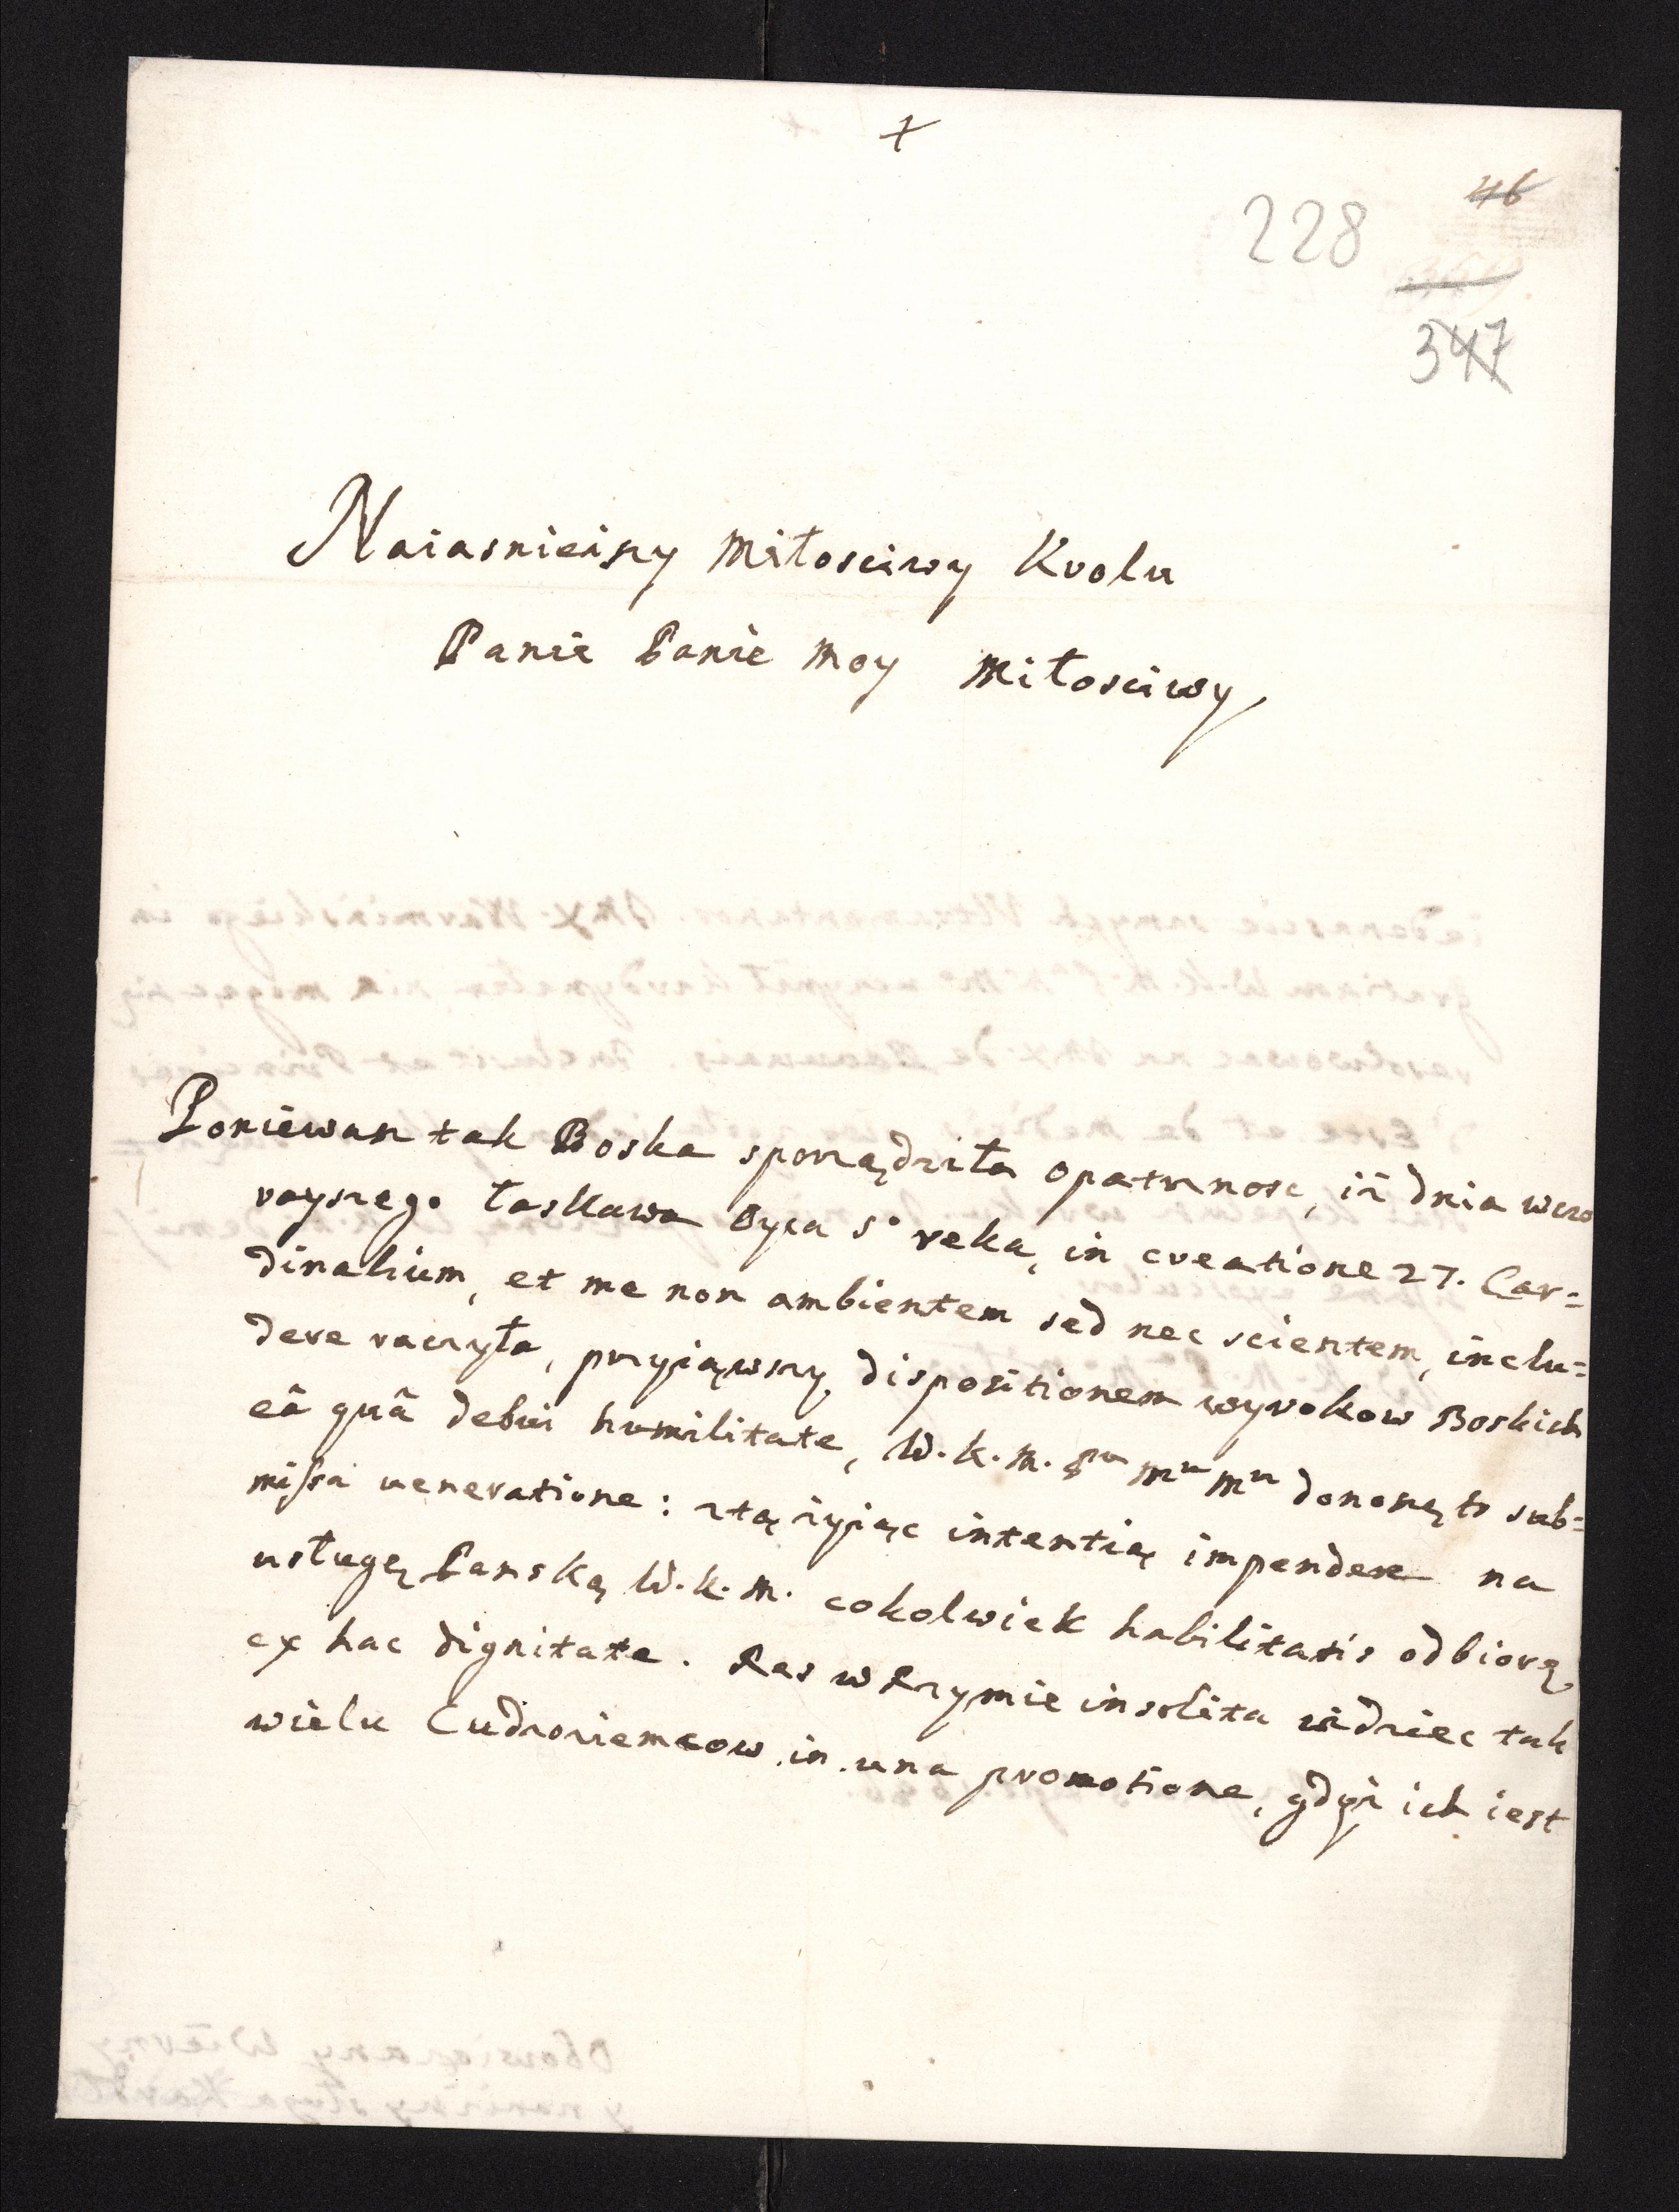 +
46
228
347
Naiasnieiszy Miłosciwy Krolu
Panie Panie moy Miłosciwy
Poniewasz tak Boska sporządziła opatrznosc, iż dnia wczo
rayszego łaskawa Oyca S° reka, in creatione 27. Car=
dinalium, et me non ambientem sed nec scientem, inclu=
dere raczyła, przyiąwszy dispositionem wyrokow Boskich
eâ quâ debui humilitate, W.K.M. Pu Mu Mu donoszę to sub=
missa ueneratione: ztą zyiąc intentią impendere na
usługę Panską W.K.M. cokolwiek habilitatis odbiorę
ex hac dignitate. Res w Rzymie insolita widziec tak
wielu Cudzoziemcow in una promotione, gdyż ich iest